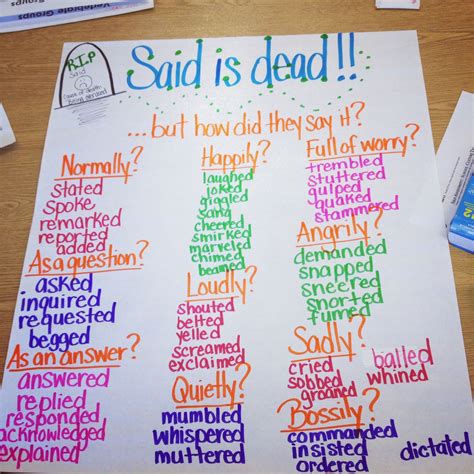 Vertebrate Groups
R.I.P
Said
Cause of death:
Being overused
Said is dead!!
...but how did they say it?
Normally?
stated
spoke
remarked
reported
added
As a question?
asked
inquired
requested
begged
As an answer?
answered
replied
responded
acknowledged
explained
Happily?
laughed
joked
giggled
sang
cheered
smirked
marveled
chimed
beamed
Loudly?
shouted
belted
yelled
screamed
exclaimed
Quietly?
mumbled
whispered
muttered
Full of worry?
trembled
stuttered
gulped
quaked
stammered
Angrily?
demanded
snapped
sneered
snorted
fumed
Sadly?
cried
sobbed
groaned
balled
whined
Bossily?
commanded
insisted
ordered
dictated